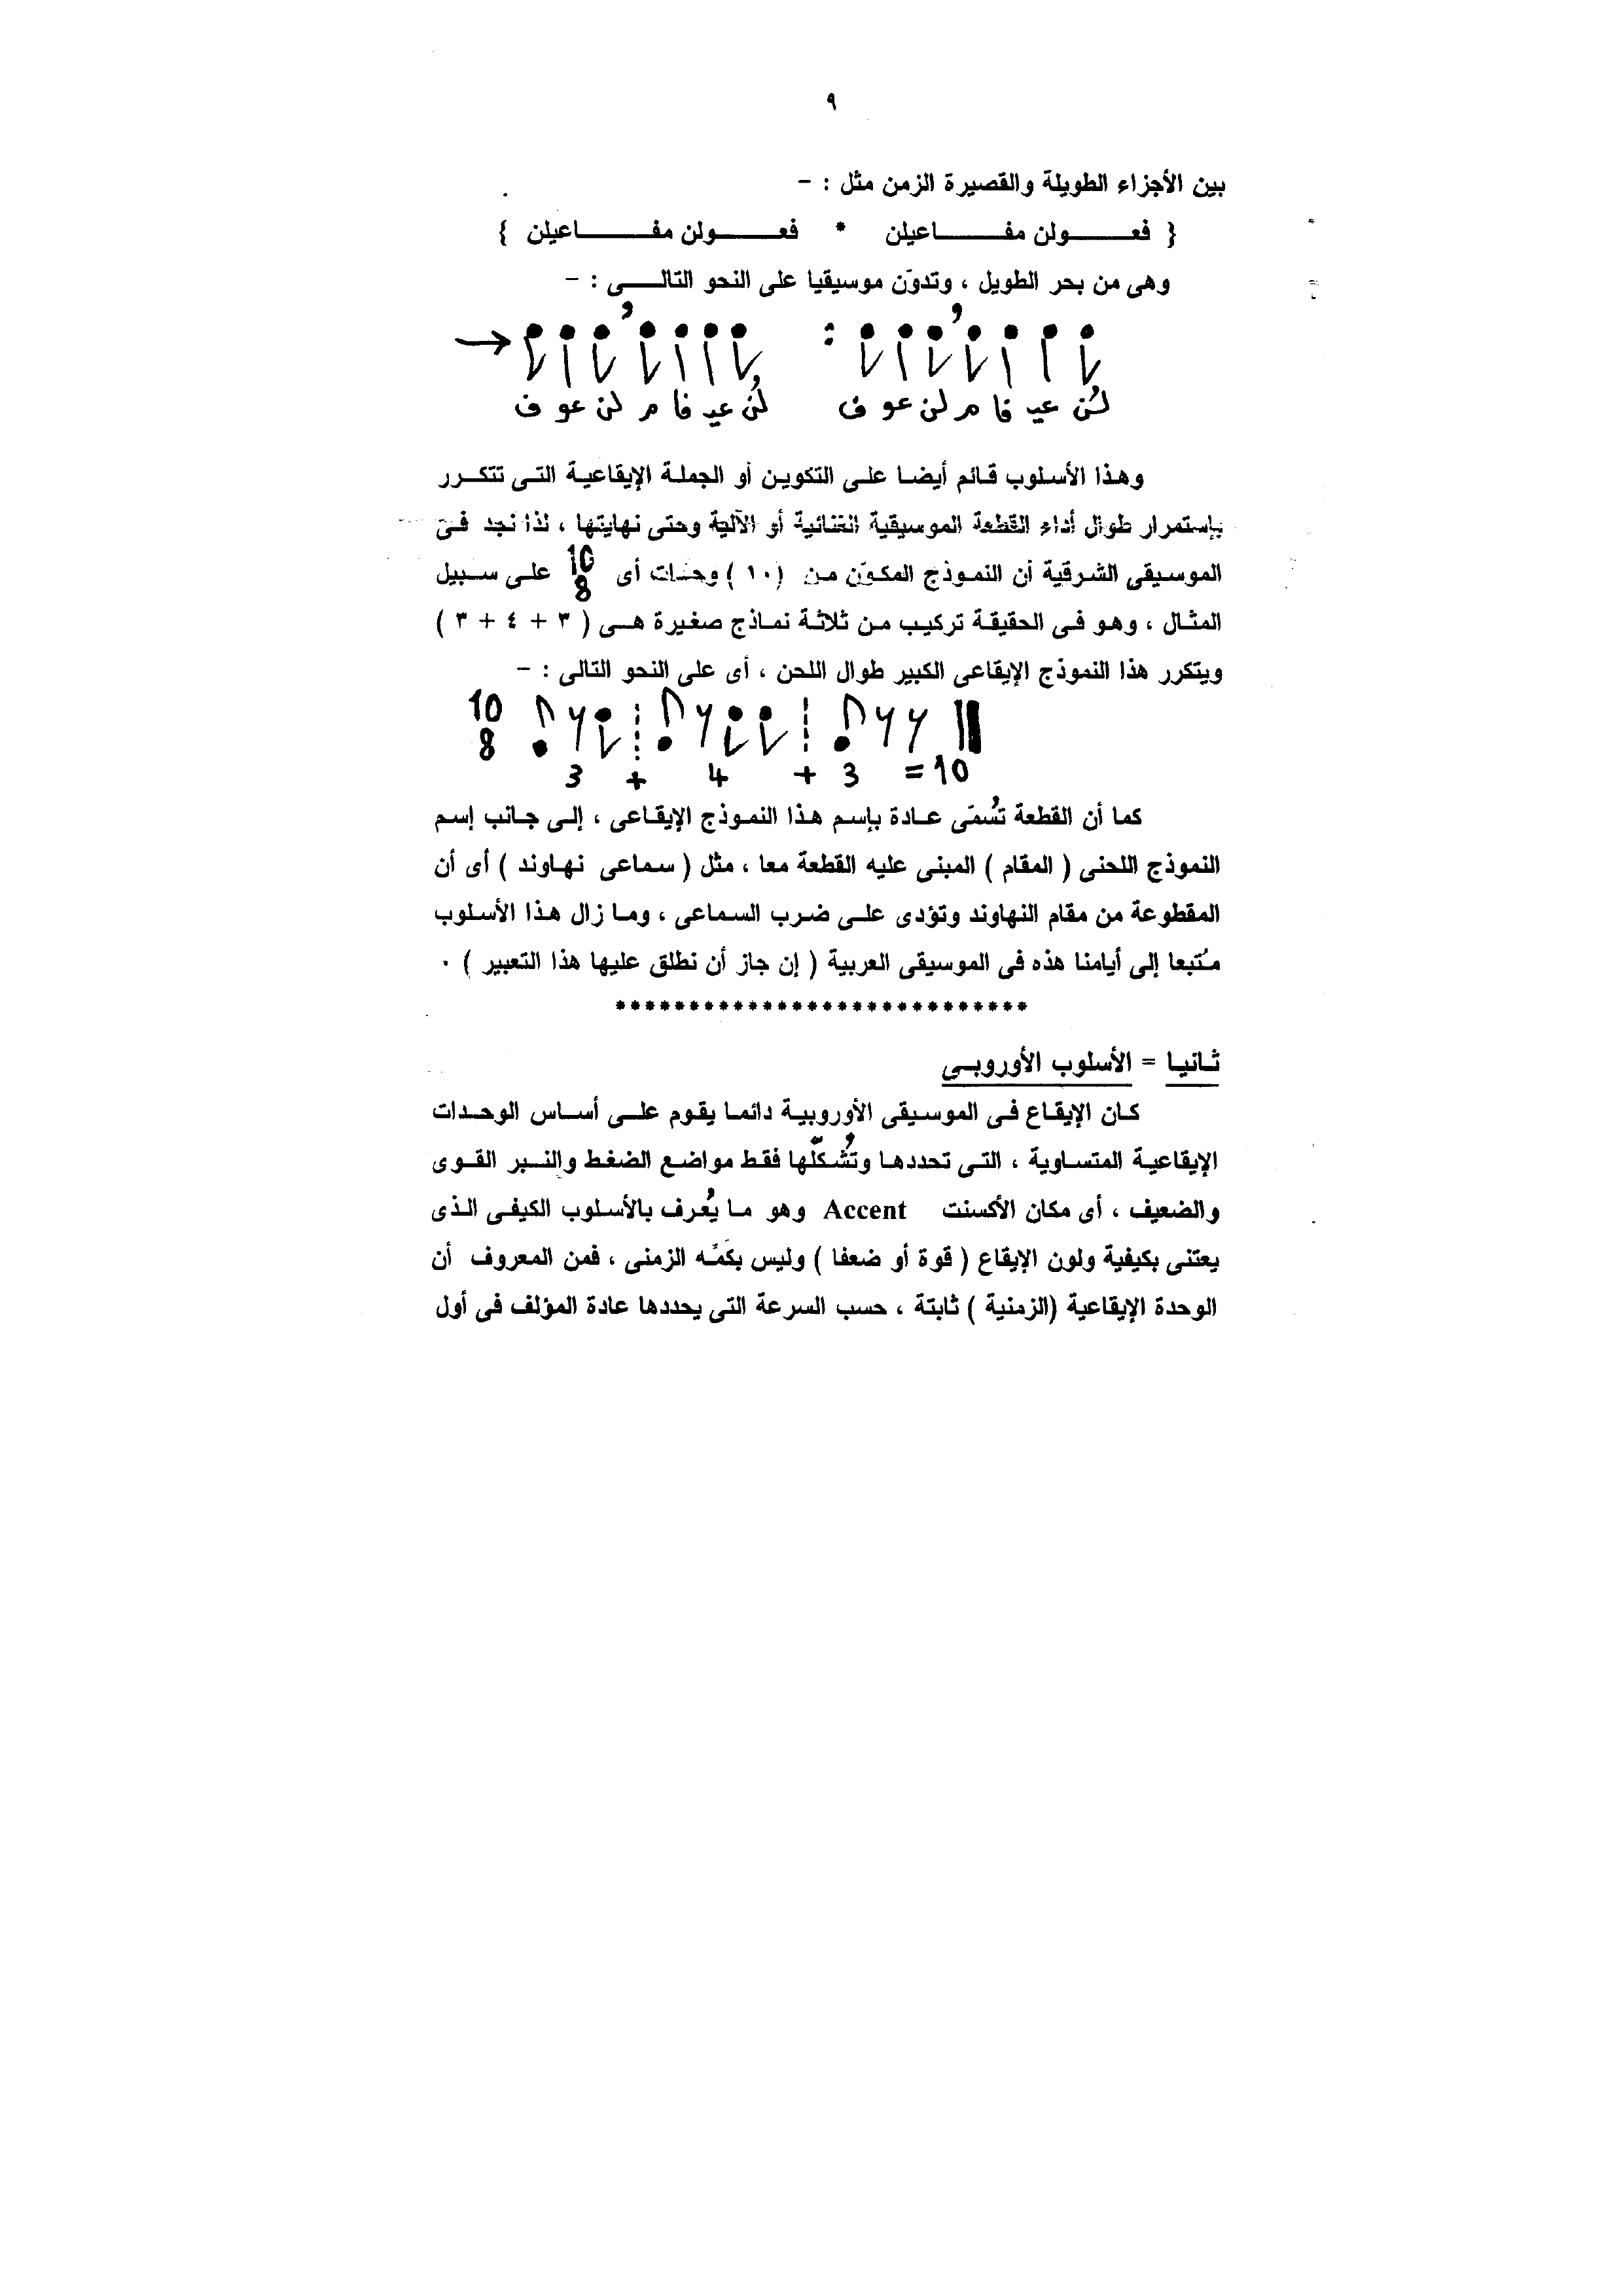 ٩
بين الأجزاء الطويلة والقصيرة الزمن مثل : –
{ فعـــــولن مفـــــاعيلن * فعـــــولن مفـــــاعيلن }
وهى من بحر الطويل ، وتدوّن موسيقيا على النحو التالـــى : –
ف عو لن م فا عيد لُن ف عو لن م فا عيد لُن
وهذا الأسلوب قائم أيضا على التكوين أو الجملة الإيقاعية التى تتكـرر
بإستمرار طوال أداء القطعة الموسيقية الغنائية أو الآلية وحتى نهايتها ، لذا نجد فى
الموسيقى الشرقية أن النموذج المكوّن من (١٠) وحدات أى 10 8 على سـبيل
المثال ، وهو فى الحقيقة تركيب من ثلاثة نماذج صغيرة هـى ( ٣ + ٤ + ٣ )
ويتكرر هذا النموذج الإيقاعى الكبير طوال اللحن ، أى على النحو التالى : –
10
8
3 + 4 + 3 = 10
كما أن القطعة تُسَمّى عادة بإسم هذا النموذج الإيقاعى ، إلى جانب إسم
النموذج اللحنى ( المقام ) المبنى عليه القطعة معا ، مثل ( سماعى نهاوند ) أى أن
المقطوعة من مقام النهاوند وتؤدى على ضرب السماعى ، وما زال هذا الأسلوب
متُبعا إلى أيامنا هذه فى الموسيقى العربية ( إن جاز أن نطلق عليها هذا التعبير ) ٠
****************************
ثانيا = الأسلوب الأوروبـى
كان الإيقاع فى الموسيقى الأوروبية دائما يقوم علـى أساس الوحدات
الإيقاعية المتساوية ، التى تحددها وتُشكلّها فقط مواضع الضغط والنـبر القـوى
والضعيف ، أى مكان الأكسنت Accent وهو ما يُعرف بالأسلوب الكيفى الذى
يعتنى بكيفية ولون الإيقاع ( قوة أو ضعفا ) وليس بكَمّه الزمنى ، فمن المعروف أن
الوحدة الإيقاعية (الزمنية ) ثابتة ، حسب السرعة التى يحددها عادة المؤلف فى أول